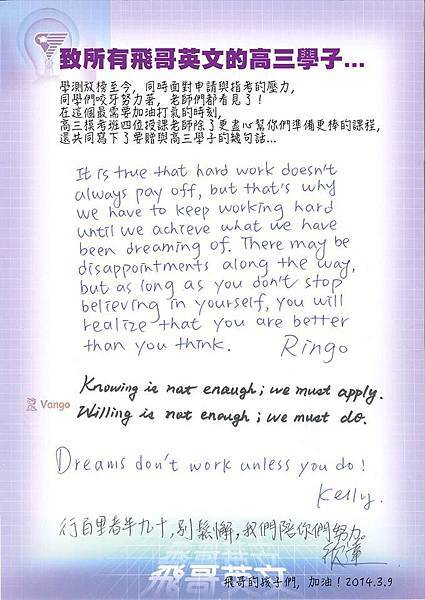 致所有飛哥英文的高三學子...
學測放榜至今, 同時面對申請與指考的壓力,
同學們咬牙努力著, 老師們都看見了!
在這個最需要加油打氣的時刻,
高三模考班四位授課老師除了更盡心幫你們準備更棒的課程,
還共同寫下了要贈與高三學子的幾句話...
It is true that hard work doesn't
always pay off, but that's why
we have to keep working hard
until we achieve what we have
been dreaming of. There may be
disappointments along the way,
but as long as you don't stop
believing in yourself, you will
realize that you are better
than you think. Ringo
Knowing is not enough; we must apply.
Vango Willing is not enough; we must do.
Dreams don't work unless you do!
Kelly.
行百里者半九十, 別鬆懈, 我們陪你們努力。
飛哥英文
飛哥的孩子們, 加油! 2014.3.9